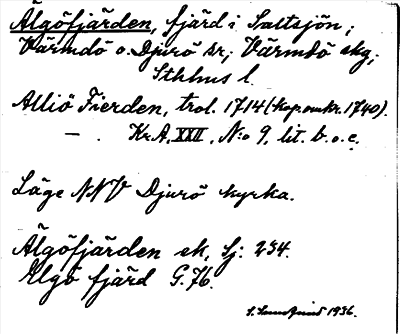 Älgöfjärden, fjärd i Saltsjön;
Värmdö o. Djurö sr; Värmdö skg;
Sthlms l.
Alliö Fierden, trol. 1714 (kop. omkr. 1740).
— . Kr.A. XXII, N:o 9, lit. b. o. c.
Läge NNV Djurö kyrka.
Älgöfjärden ek, Sj: 234.
Elgö fjärd G.76.
1936.